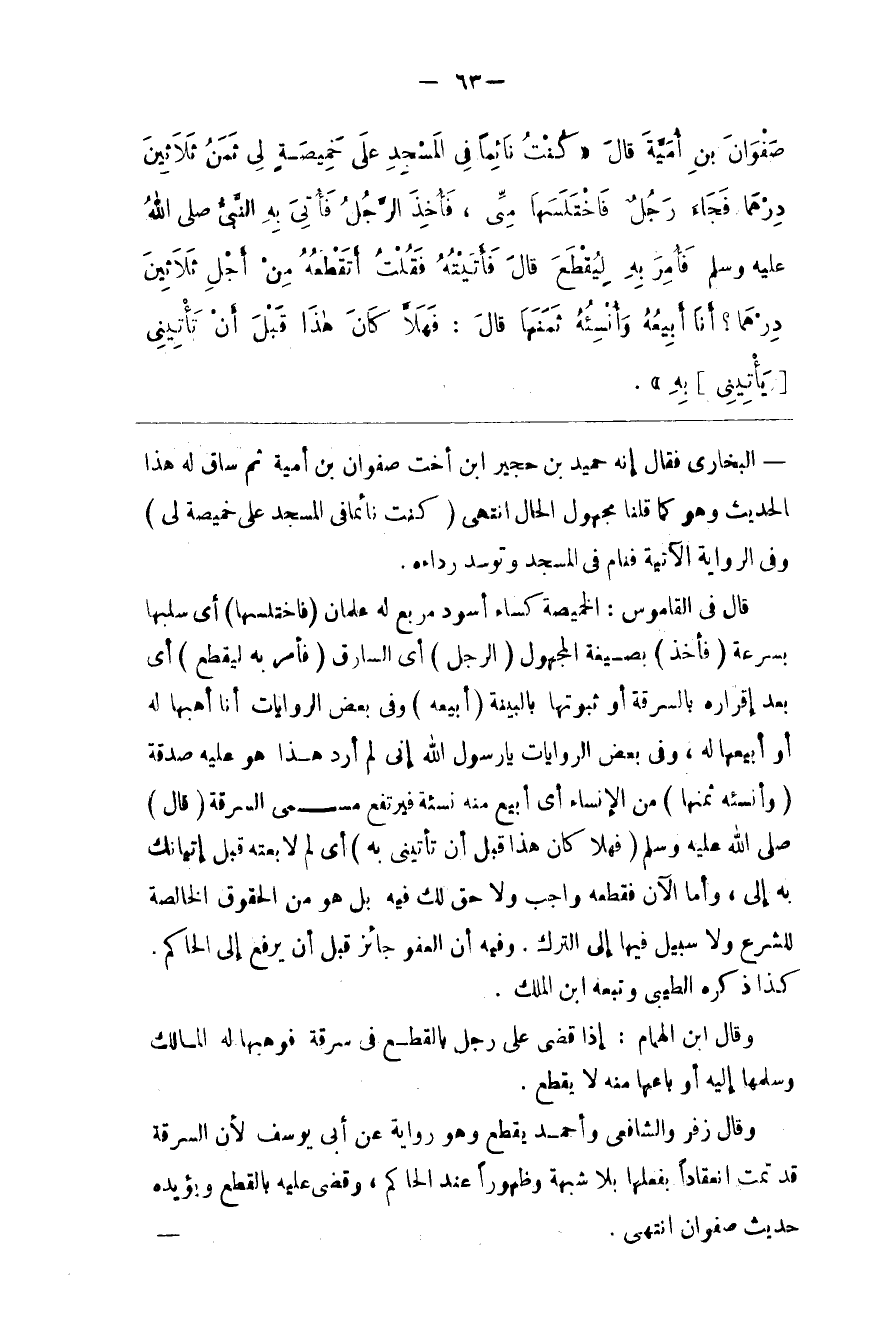 — ٦٣ —
صَفْوَانَ بنِ أُمَيَّةَ قالَ « كُنْتُ نَائِماً فِى المَسْجِدِ عَلَى خَمِيصَةٍ لِى ثَمَنُ ثَلَاثِينَ
دِرْهَمَا فَجَاءَ رَجُلٌ فَاخْتَلَسَهَا مِنِّى ، فَأُخِذَ الرَّجُلُ فَأُتِىَ بِهِ النَّبِىُّ صلى اللهُ
عليه وسلم فَأُمِرَ بِهِ لِيُقْطَعَ قالَ فَأَتَيْتُهُ فَقُلْتُ أَتَقْطَعُهُ مِنْ أَجْلِ ثَلَاثِينَ
دِرْهَمَا ؟ أَنَا أَبِيعُهُ وَأُنْسِئُهُ ثَمَنَهَا قالَ : فَهَلاَّ كَانَ هٰذَا قَبْلَ أَنْ تَأْتِيَنِى
[ يَأْتِيَنِى ] بِهِ » .
— البخارى فقال إنه حميد بن حجير ابن أخت صفوان بن أمية ثم ساق له هذا
الحديث وهو كما قلنا مجهول الحال انتهى ( كنت نائمافى المسجد على خميصة لى )
وفى الرواية الآتية فنام فى المسجد وتوسد رداءه .
قال فى القاموس : الخميصة كساء أسود مربع له علمان (فاختلسها) أى سلبها
بسرعة ( فأخذ ) بصيغة المجهول ( الرجل ) أى السارق ( فأمر به ليقطع ) أى
بعد إقراره بالسرقة أو ثبوتها بالبينة ( أبيعه ) وفى بعض الروايات أنا أهبها له
أو أبيعها له ، وفى بعض الروايات يارسول الله إنى لم أرد هذا هو عليه صدقة
( وأنسئه ثمنها ) من الإنساء أى أبيع منه نسئة فيرتفع مسمى السرقة ( قال )
صلى الله عليه وسلم ( فهلا كان هذا قبل أن تأتينى به ) أى لم لا بعته قبل إتيانك
به إلى ، وأما الآن فقطعه واجب ولا حق لك فيه بل هو من الحقوق الخالصة
للشرع ولا سبيل فيها إلى الترك . وفيه أن العفو جائز قبل أن يرفع إلى الحاكم .
كذا ذكره الطيبى وتبعه ابن الملك .
وقال ابن الهام : إذا قضى على رجل بالقطع فى سرقة فوهبها له المالك
وسلمها إليه أو باعها منه لا يقطع .
وقال زفر والشافعى وأحمد يقطع وهو رواية عن أبى يوسف لأن السرقة
قد تمت انعقاداً بفعلها بلا شبهة وظهوراً عند الحاكم ، وقضى عليه بالقطع ويؤيده
حديث صفوان انتهى . —